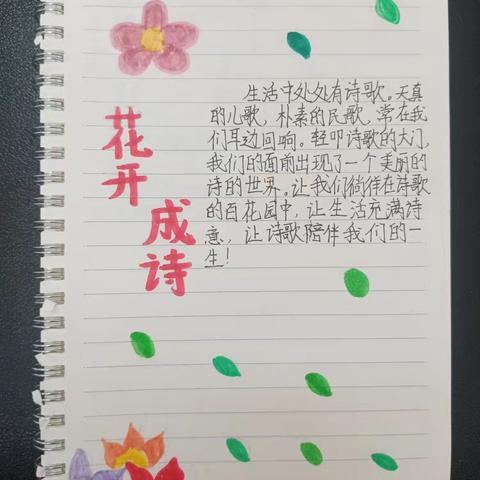 花开
成诗
生活中处处有诗歌。天真
的儿歌，朴素的民歌，常在我
们耳边回响。轻叩诗歌的大门，
我们的面前出现了一个美丽的
诗的世界。让我们徜徉在诗歌
的百花园中，让生活充满诗
意，让诗歌陪伴我们的一
生！